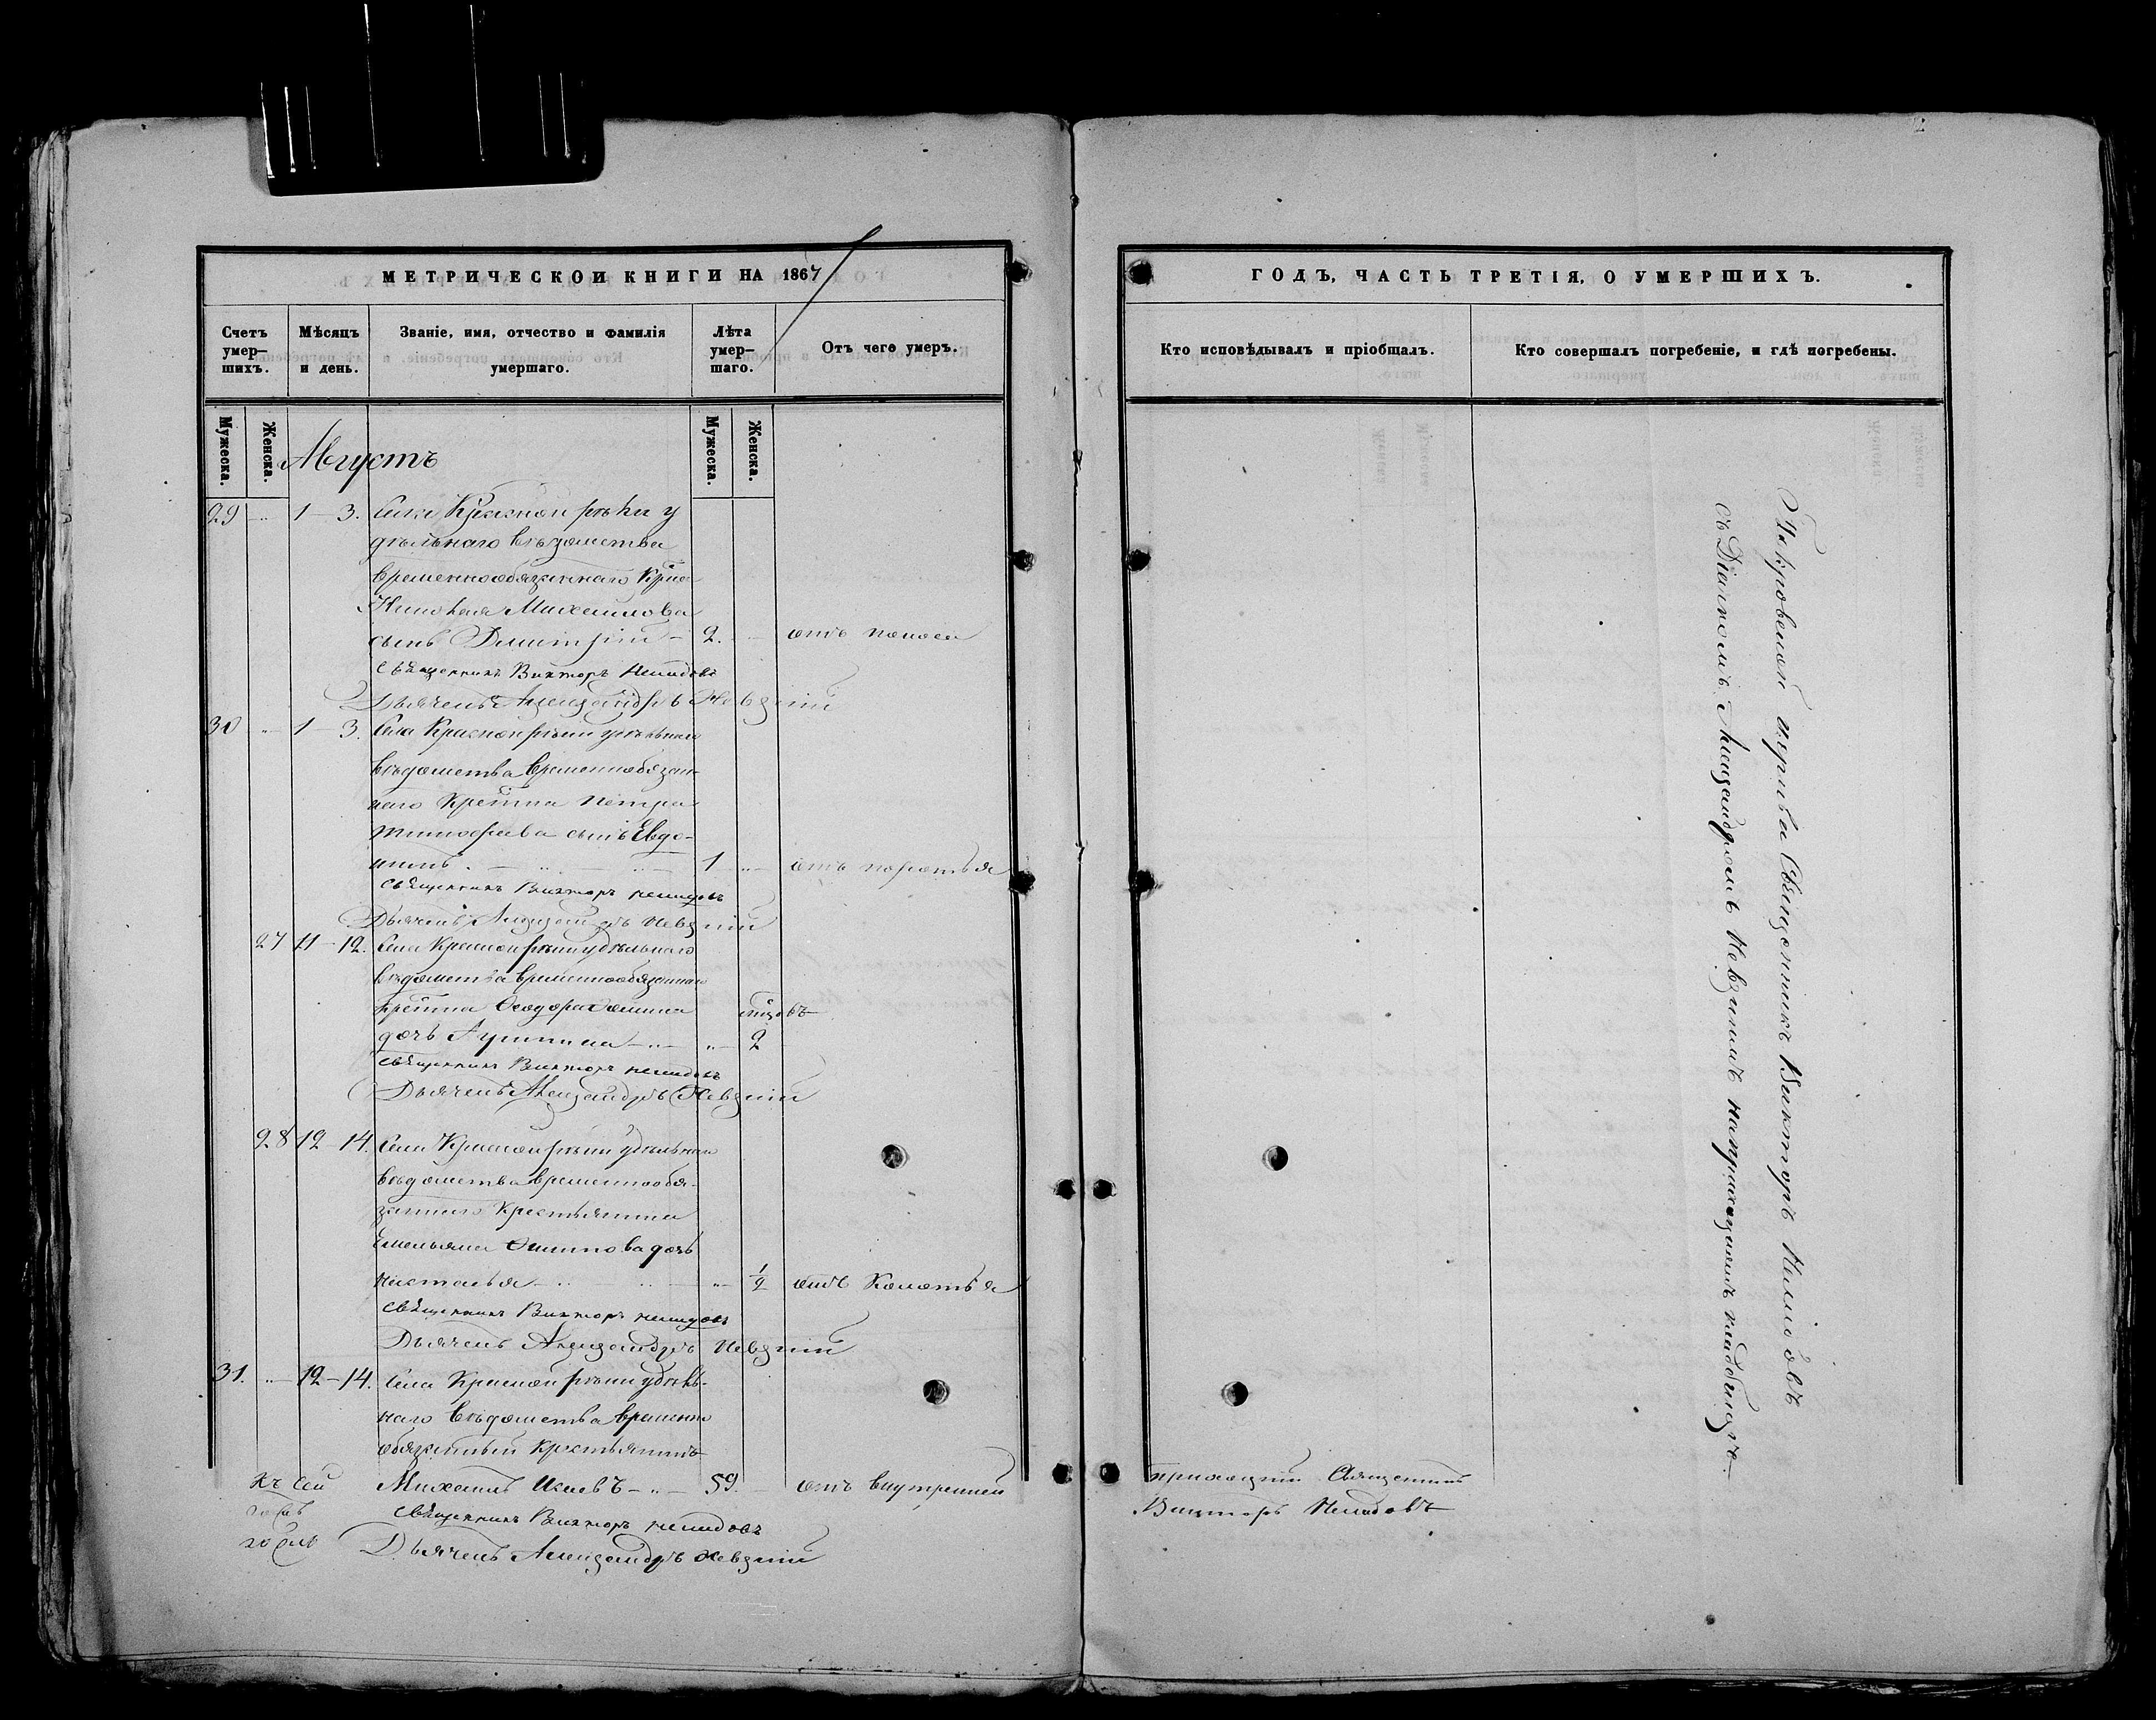 МЕТРИЧЕСКОЙ КНИГИ НА 1867
Счетъ умер–шихъ.
Мѣсяцъ и день.
Званіе, имя, отчество и фамилія умершаго.
Лѣта умер–шаго.
Отъ чего умеръ.
Мужеска.
Женска.
Мужеска.
Женска.
Августъ
29 " 1 – 3. Села Красной рѣки у
дѣльнаго вѣдомства
временнообязаннаго Кр–на
Николая Михайлова
сынъ Дмитрій – 2. – отъ поноса
Священникъ Викторъ Нелидовъ
Дьячекъ Александръ Невзгій
30 " 1 – 3. Села Красной рѣки удѣльнаго
вѣдомства временнообязан–
наго Кретина Петра
Тимофѣева сынъ Евдо–
кимъ. – " – " – 1 " отъ коротья
Священникъ Викторъ Нелидовъ
Дьячекъ Александръ Невзгій
27 11 – 12. Села Красной рѣки удѣльнаго
вѣдомства временнообязаннаго
Кретина Ѳеодора
дочь – " – " 2
Священникъ Викторъ Нелидовъ
Дьячекъ Александръ Невзгій
28 12 14. Села Красной рѣки удѣльнаго
вѣдомства временнообя–
заннаго Крестьянина
Емельяна дочь
Настасья – " – " – " 1/2 отъ
Священникъ Викторъ Нелидовъ
Дьячекъ Александръ Невзгій
31. " 12 – 14. Села Красной рѣки удѣль–
наго вѣдомства временно
обязанный Крестьянинъ
Михаилъ Исаевъ – " – 59. – отъ внутренней
Священникъ Викторъ Нелидовъ
Дьячекъ Александръ Невзгій
ГОДЪ, ЧАСТЬ ТРЕТІЯ, О УМЕРШИХЪ.
Кто исповѣдывалъ и пріобщалъ.
Кто совершалъ погребеніе, и гдѣ погребены.
Покровской церкви Священникъ Викторъ Нелидовъ
съ Дьячкомъ Александромъ на приходскомъ кладбищѣ –
приходскій Священникъ
Викторъ Нелидовъ